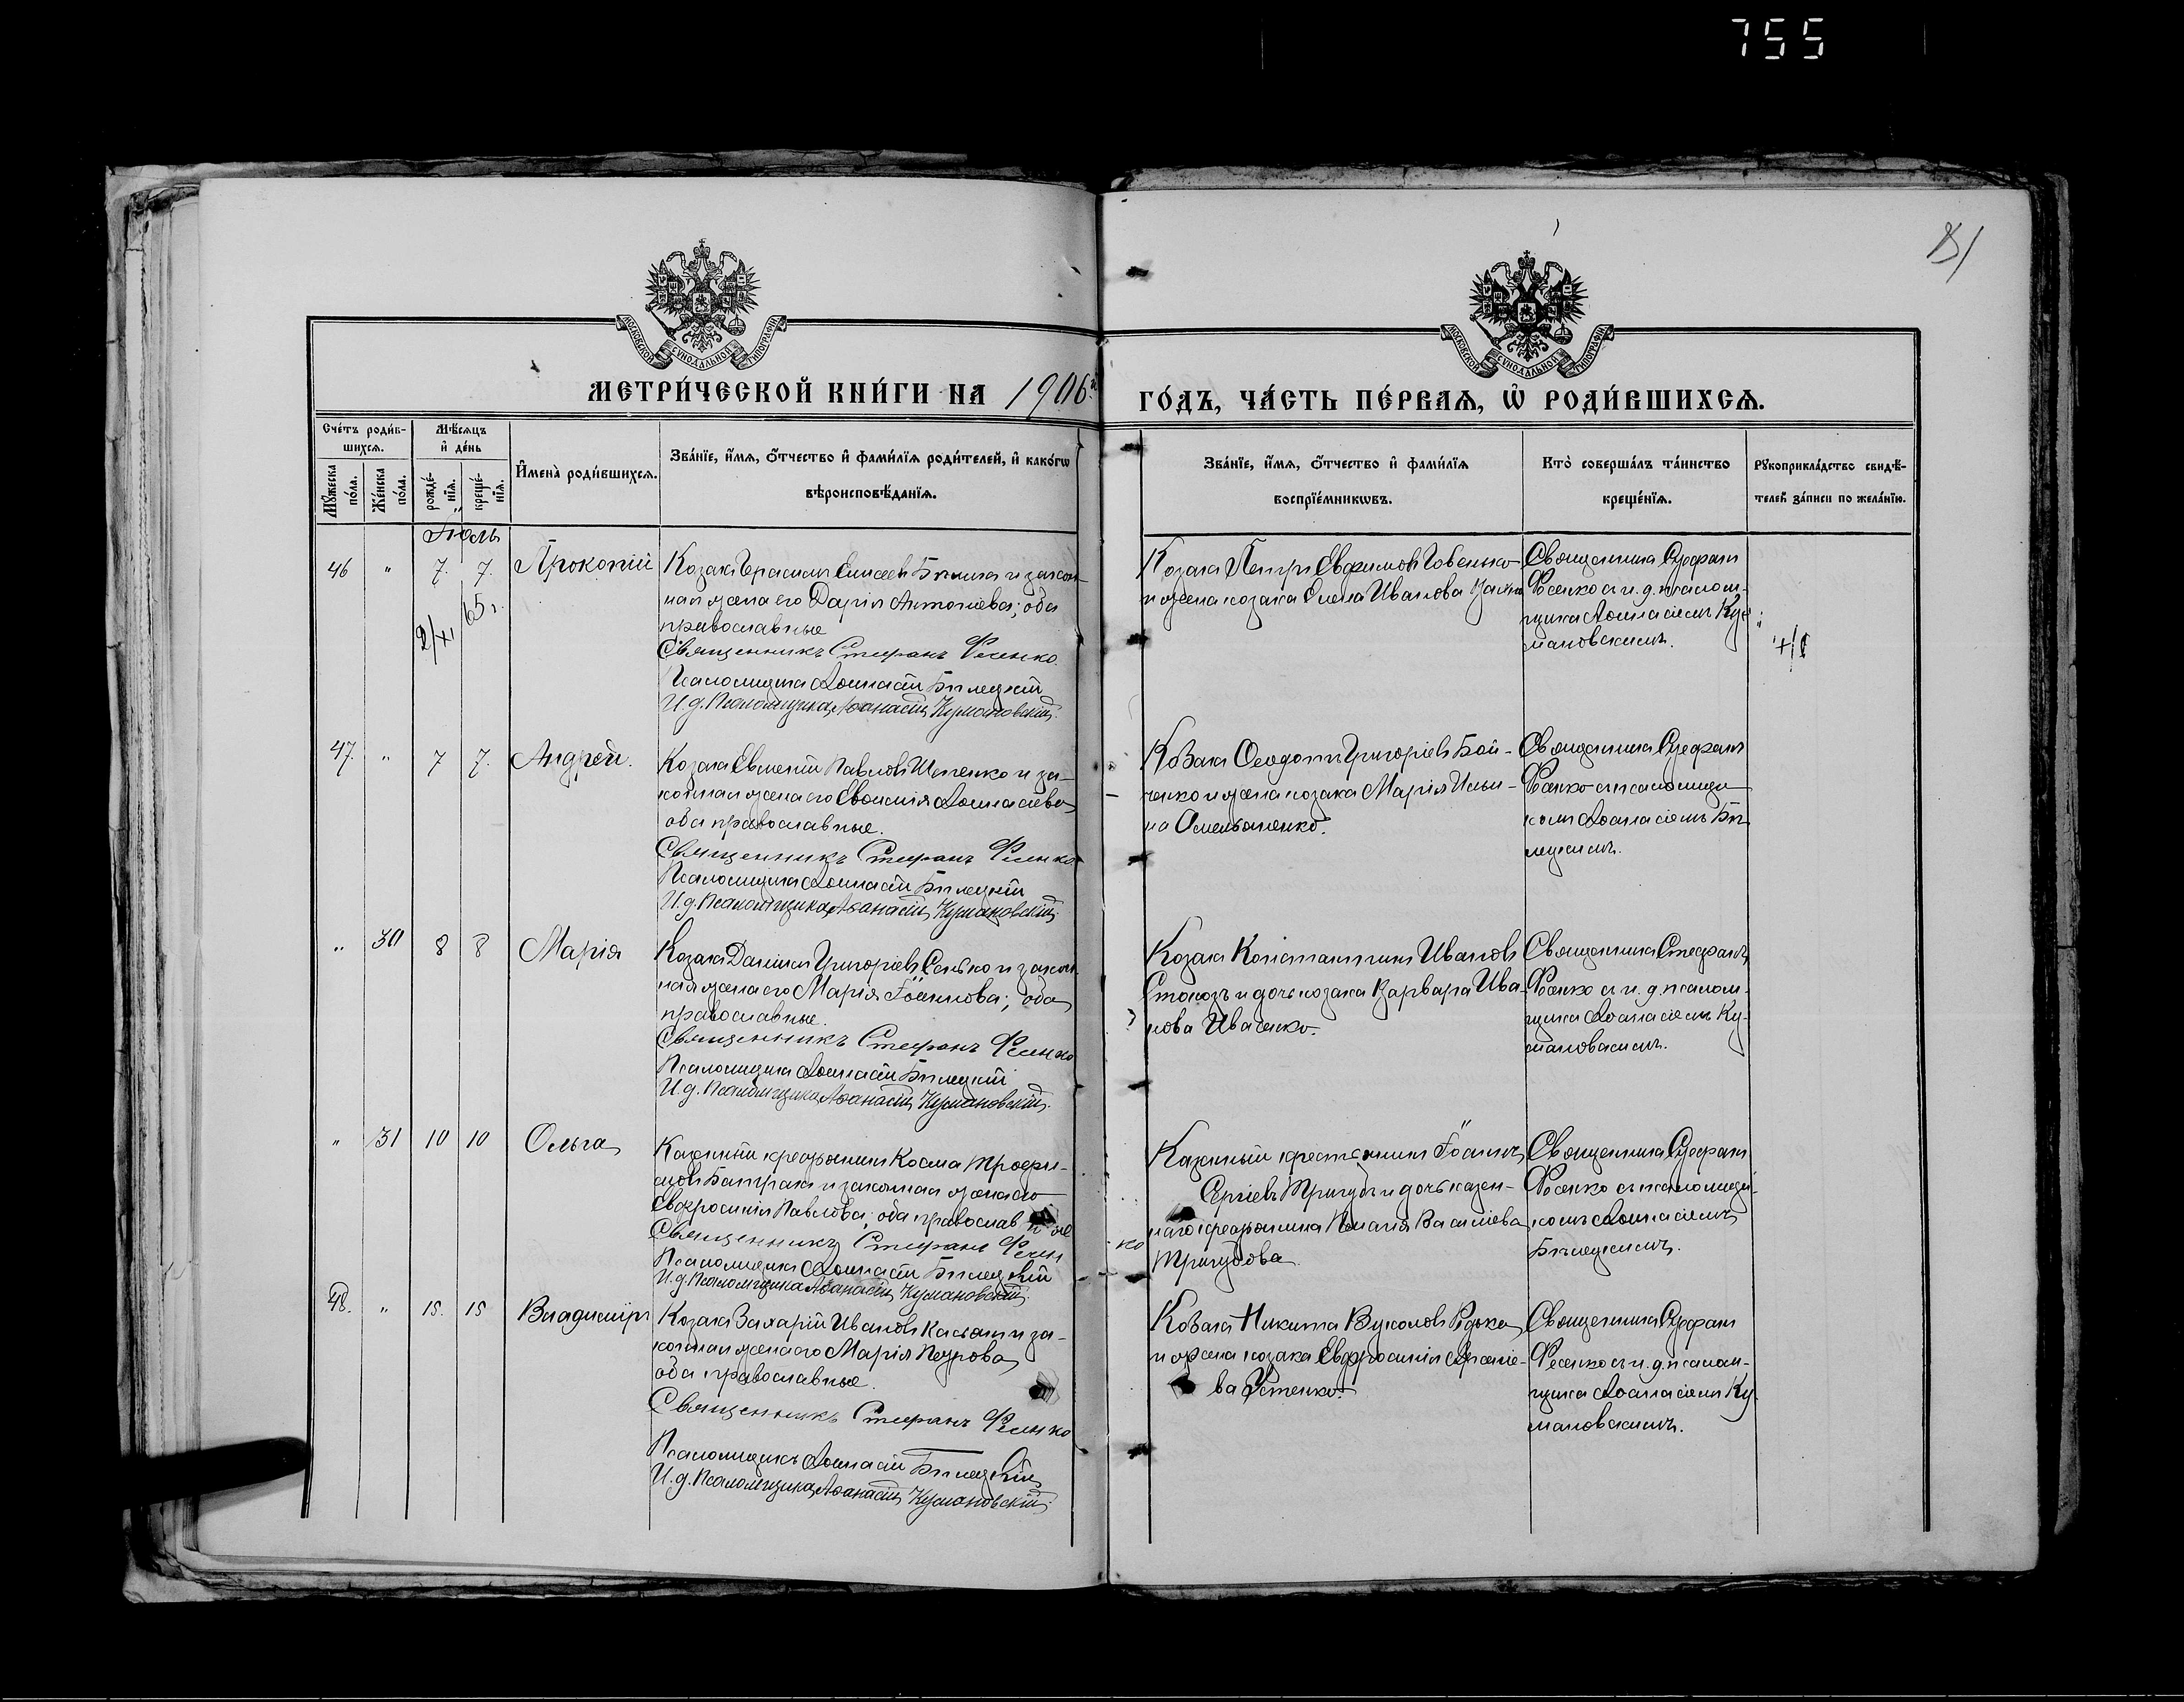 755
81
МОСКОВСКОЙ СУНОДАЛЬНОЙ ТИПОГРАФІИ
МОСКОВСКОЙ СУНОДАЛЬНОЙ ТИПОГРАФІИ
МЕТРИ́ЧЕСКОЙ КНИ́ГИ НА 1906й
ГО́ДЪ, ЧА́СТЬ ПЕ́РВАЯ, Ѡ҆ РОДИ́ВШИХСЯ.
Сче́тъ роди́в-
шихся.
Мѣ́сяцъ
и҆ де́нь
И҆мена̀ роди́вшихся.
Зва́нїе, и҆́мя, ѻ҆́тчество и҆ фами́лїя роди́телей, и҆ како́гѡ
вѣроисповѣ́данїя.
Мꙋ́жеска по́ла.
Же́нска по́ла.
рожде́-нїя.
креще́-нїя.
Зва́нїе, и҆́мя, ѻ҆́тчество и҆ фами́лїя
воспрїе́мникѡвъ.
Кто̀ соверша́лъ та́инство
креще́нїя.
Рꙋкоприкла́дство свидѣ́-
телей за́писи по жела́нїю.
Іюль
46 " 7. 7. Прокопій
Козакъ Герасимъ Елисеевъ и закон-
ная жена его Дарія Антоніева; оба
православные
Священникъ Стефанъ Фесенко.
Псаломщикъ Аѳанасій Билецкій
И.д. Псаломщика Аѳанасій Кумановскій.
2/XI 65 г.
Козакъ Петръ Евфимовъ
и жена козака Елена Иванова
Священникъ Стефанъ
Фесенко съ и. д. псалом-
щика Аѳанасіемъ Ку-
мановскимъ.
47. " 7 7. Андрей.
Козакъ Евгеній Павловъ Шепенко и за-
конная жена его Евѳимія Аѳанасіева,
оба православные.
Священникъ Стефанъ Фесенко.
Псаломщикъ Аѳанасій Билецкій
И.д. Псаломщика Аѳанасій Кумановскій.
Козакъ Ѳеодотъ Григоріевъ Бой-
ченко и жена козака Марія Ильи-
на Омельяненко.
Священникъ Стефанъ
Фесенко съ псаломщи-
комъ Аѳанасіемъ Би-
лецкимъ.
" 30 8 8 Марія
Козакъ Даніилъ Григоріевъ Сенько и закон-
ная жена его Марія Іоаннова; оба
православные.
Священникъ Стефанъ Фесенко
Псаломщикъ Аѳанасій Билецкій
И.д. Псаломщика Аѳанасій Кумановскій.
Козакъ Константинъ Ивановъ
Стокозъ и дочь козака Варвара Ива-
нова Иваненко.
Священникъ Стефанъ
Фесенко съ и. д. псалом-
щика Аѳанасіемъ Ку-
мановскимъ.
" 31 10 10 Ольга
Казенный крестьянинъ Косма Трофи-
мовъ Батракъ и законная жена его
Евфросинія Павлова; оба православные
Священникъ Стефанъ Фесен
ко
Псаломщикъ Аѳанасій Билецкій
И.д. Псаломщика Аѳанасій Кумановскій.
Казенный крестьянинъ Іоаннъ
Сергіевъ Тригубъ и дочь казен-
наго крестьянина Василіева
Тригубова.
Священникъ Стефанъ
Фесенко съ псаломщи-
комъ Аѳанасіемъ
Билецкимъ.
48. " 15. 15 Владиміръ
Козакъ Захарій Ивановъ Касьянъ и за-
конная жена его Марія Петрова,
оба православные.
Священникъ Стефанъ Фесенко
Псаломщикъ Аѳанасій Билецкій
И.д. Псаломщика Аѳанасій Кумановскій.
Козакъ Никита Вуколовъ Редька
и жена козака Евфросинія Арсеніе-
ва Устенко.
Священникъ Стефанъ
Фесенко съ и. д. псалом-
щика Аѳанасіемъ Ку-
мановскимъ.